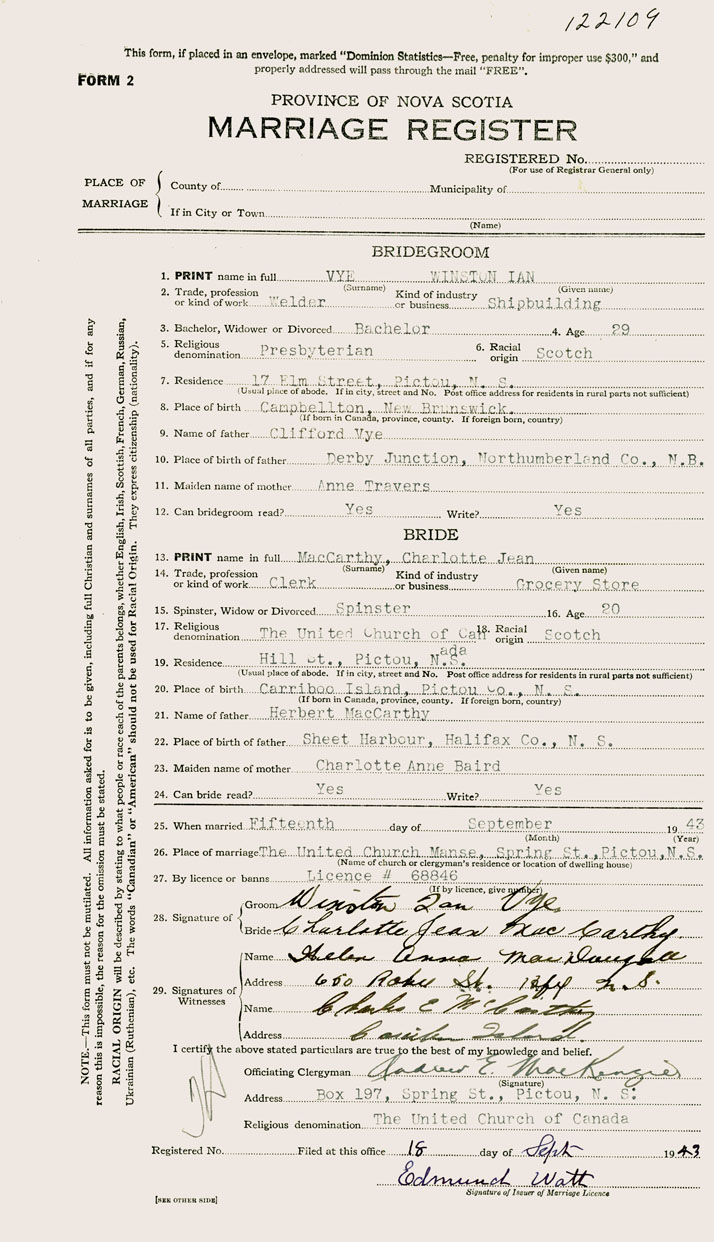 122109
This form, if placed in an envelope, marked "Dominion Statistics—Free, penalty for improper use $300," and
properly addressed will pass through the mail "FREE".
FORM 2
PROVINCE OF NOVA SCOTIA
MARRIAGE REGISTER
REGISTERED No.
(For use of Registrar General only)
PLACE OF MARRIAGE
County of Municipality of
If in City or Town
(Name)
BRIDEGROOM
1. PRINT name in full VYE WINSTON IAN
(Surname) (Given name)
2. Trade, profession or kind of work Welder Kind of industry or business Shipbuilding
3. Bachelor, Widower or Divorced Bachelor 4. Age 29
5. Religious denomination Presbyterian 6. Racial origin Scotch
7. Residence 17 Elm Street, Pictou, N. S.
(Usual place of abode. If in city, street and No. Post office address for residents in rural parts not sufficient)
8. Place of birth Campbellton, New Brunswick.
(If born in Canada, province, county. If foreign born, country)
9. Name of father Clifford Vye
10. Place of birth of father Derby Junction, Northumberland Co., N.B.
11. Maiden name of mother Anne Travers
12. Can bridegroom read? Yes Write? Yes
BRIDE
13. PRINT name in full MacCarthy, Charlotte Jean
(Surname) (Given name)
14. Trade, profession or kind of work Clerk Kind of industry or business Grocery Store
15. Spinster, Widow or Divorced Spinster 16. Age 20
17. Religious denomination The United Church of Canada 18. Racial origin Scotch
19. Residence Hill St., Pictou, N.S.
(Usual place of abode. If in city, street and No. Post office address for residents in rural parts not sufficient)
20. Place of birth Carriboo Island, Pictou Co., N. S.
(If born in Canada, province, county. If foreign born, country)
21. Name of father Herbert MacCarthy
22. Place of birth of father Sheet Harbour, Halifax Co., N. S.
23. Maiden name of mother Charlotte Anne Baird
24. Can bride read? Yes Write? Yes
25. When married Fifteenth day of September 19 43
(Month) (Year)
26. Place of marriage The United Church Manse, Spring St., Pictou, N.S.
(Name of church or clergyman's residence or location of dwelling house)
27. By licence or banns Licence # 68846
(If by licence, give number)
28. Signature of
Groom Winston Ian Vye
Bride Charlotte Jean Mac Carthy.
29. Signatures of Witnesses
Name Helen Anna MacDougall
Address St. N.S.
Name Charles E McCarthy
Address Island.
I certify the above stated particulars are true to the best of my knowledge and belief.
Officiating Clergyman Andrew E. MacKenzie
(Signature)
Address Box 197, Spring St., Pictou, N. S.
Religious denomination The United Church of Canada
Registered No. Filed at this office 18 day of Sept 19 43
Edmund Watt
Signature of Issuer of Marriage Licence
[SEE OTHER SIDE]
NOTE.—This form must not be mutilated. All information asked for is to be given, including full Christian and surnames of all parties, and if for any
reason this is impossible, the reason for the omission must be stated.
RACIAL ORIGIN will be described by stating to what people or race each of the parents belongs, whether English, Irish, Scottish, French, German, Russian,
Ukrainian (Ruthenian), etc. The words "Canadian" or "American" should not be used for Racial Origin. They express citizenship (nationality).